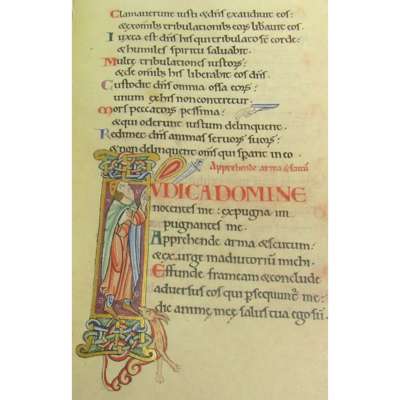 Clamauerunt iusti & dñs exaudiuit eos:
& ex omib; tribulationib; eorũ libauit eos.
Iuxta est dñs his qui tribulato st̃ corde:
& humiles spiritu saluabit.
Multę tribulationes iustorũ:
& de omib; his liberabit eos dñs.
Custodit dñs omnia ossa eorũ:
unum ex his non conteretur.
Mors peccatorũ pessima:
& qui oderunt iustum delinquent.
Redimet dñs animas seruorũ suorũ:
& non delinquent om̃s qui sperant in eo.
Apprehende arma & scutũ
IVDICA DOMINE
nocentes me: expugna im
pugnantes me.
Apprehende arma & scutum:
& exurge in adiutoriũ michi.
Effunde frameam & conclude
aduersus eos qui persequunt̃ me:
dic animę meę salus tua ego sũ.